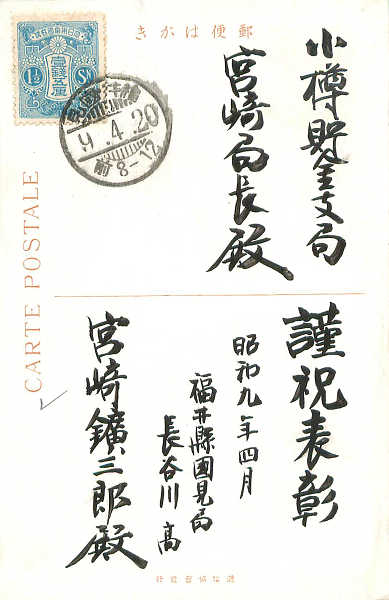 郵便はがき
小樽貯金支局
宮崎局長殿
1½ Sn
壹錢五厘
9.4.20
前8-12
CARTE POSTALE
謹祝表彰
昭和九年四月
福井縣國見局
長谷川高
宮崎鑛三郎殿